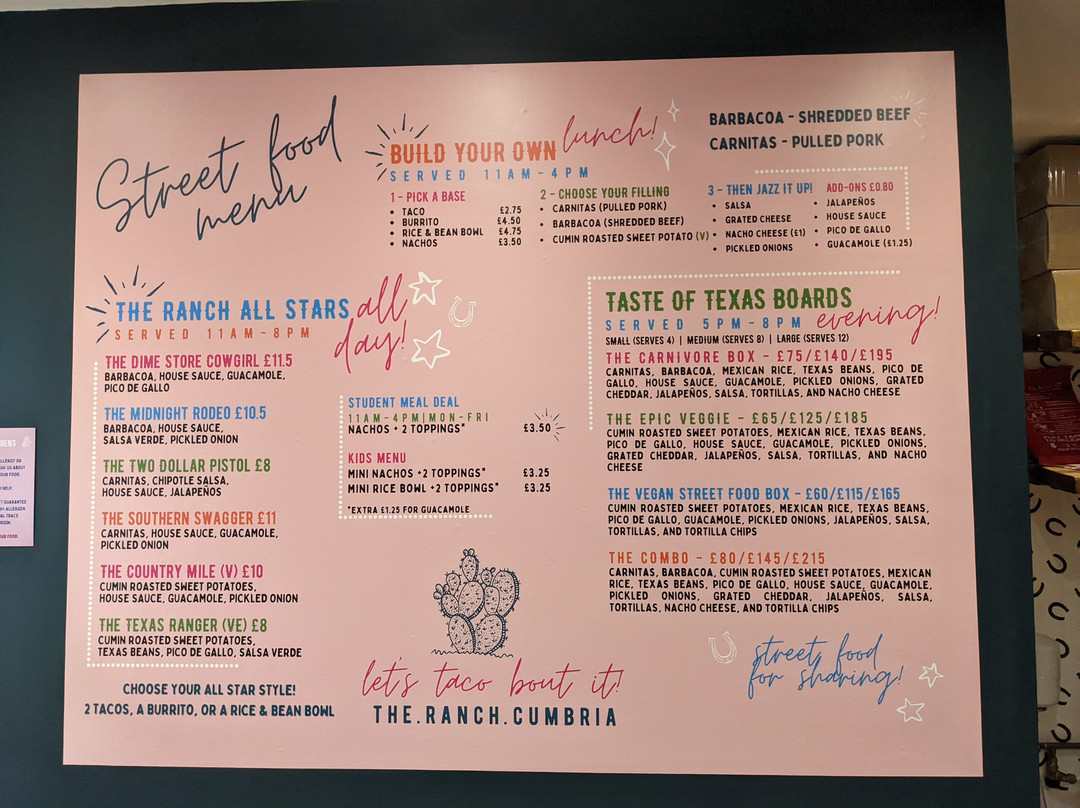 Street food
menu
BUILD YOUR OWN lunch!
SERVED 11AM - 4PM
1 - PICK A BASE
• TACO £2.75
• BURRITO £4.50
• RICE & BEAN BOWL £4.75
• NACHOS £3.50
2 - CHOOSE YOUR FILLING
• CARNITAS (PULLED PORK)
• BARBACOA (SHREDDED BEEF)
• CUMIN ROASTED SWEET POTATO (V)
BARBACOA - SHREDDED BEEF
CARNITAS - PULLED PORK
3 - THEN JAZZ IT UP! ADD-ONS £0.80
• SALSA
• GRATED CHEESE
• NACHO CHEESE (£1)
• PICKLED ONIONS
• JALAPEÑOS
• HOUSE SAUCE
• PICO DE GALLO
• GUACAMOLE (£1.25)
THE RANCH ALL STARS all day!
SERVED 11AM - 8PM
THE DIME STORE COWGIRL £11.5
BARBACOA, HOUSE SAUCE, GUACAMOLE,
PICO DE GALLO
THE MIDNIGHT RODEO £10.5
BARBACOA, HOUSE SAUCE,
SALSA VERDE, PICKLED ONION
THE TWO DOLLAR PISTOL £8
CARNITAS, CHIPOTLE SALSA,
HOUSE SAUCE, JALAPEÑOS
THE SOUTHERN SWAGGER £11
CARNITAS, HOUSE SAUCE, GUACAMOLE,
PICKLED ONION
THE COUNTRY MILE (V) £10
CUMIN ROASTED SWEET POTATOES,
HOUSE SAUCE, GUACAMOLE, PICKLED ONION
THE TEXAS RANGER (VE) £8
CUMIN ROASTED SWEET POTATOES,
TEXAS BEANS, PICO DE GALLO, SALSA VERDE
CHOOSE YOUR ALL STAR STYLE!
2 TACOS, A BURRITO, OR A RICE & BEAN BOWL
STUDENT MEAL DEAL
11AM-4PM|MON-FRI
NACHOS + 2 TOPPINGS* £3.50
KIDS MENU
MINI NACHOS +2 TOPPINGS* £3.25
MINI RICE BOWL +2 TOPPINGS* £3.25
*EXTRA £1.25 FOR GUACAMOLE
let's taco bout it!
THE.RANCH.CUMBRIA
TASTE OF TEXAS BOARDS
SERVED 5PM - 8PM evening!
SMALL (SERVES 4) | MEDIUM (SERVES 8) | LARGE (SERVES 12)
THE CARNIVORE BOX - £75/£140/£195
CARNITAS, BARBACOA, MEXICAN RICE, TEXAS BEANS, PICO DE
GALLO, HOUSE SAUCE, GUACAMOLE, PICKLED ONIONS, GRATED
CHEDDAR, JALAPEÑOS, SALSA, TORTILLAS, AND NACHO CHEESE
THE EPIC VEGGIE - £65/£125/£185
CUMIN ROASTED SWEET POTATOES, MEXICAN RICE, TEXAS BEANS,
PICO DE GALLO, HOUSE SAUCE, GUACAMOLE, PICKLED ONIONS,
GRATED CHEDDAR, JALAPEÑOS, SALSA, TORTILLAS, AND NACHO
CHEESE
THE VEGAN STREET FOOD BOX - £60/£115/£165
CUMIN ROASTED SWEET POTATOES, MEXICAN RICE, TEXAS BEANS,
PICO DE GALLO, GUACAMOLE, PICKLED ONIONS, JALAPEÑOS, SALSA,
TORTILLAS, AND TORTILLA CHIPS
THE COMBO - £80/£145/£215
CARNITAS, BARBACOA, CUMIN ROASTED SWEET POTATOES, MEXICAN
RICE, TEXAS BEANS, PICO DE GALLO, HOUSE SAUCE, GUACAMOLE,
PICKLED ONIONS, GRATED CHEDDAR, JALAPEÑOS, SALSA,
TORTILLAS, NACHO CHEESE, AND TORTILLA CHIPS
street food
for sharing!